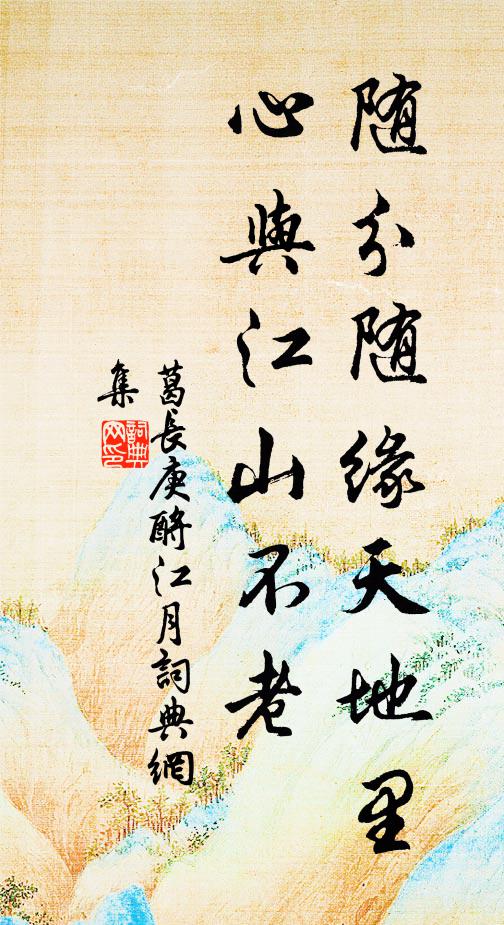 随分随缘天地里
心與江山不老
葛長庚酹江月詞典網
集
詞典網印